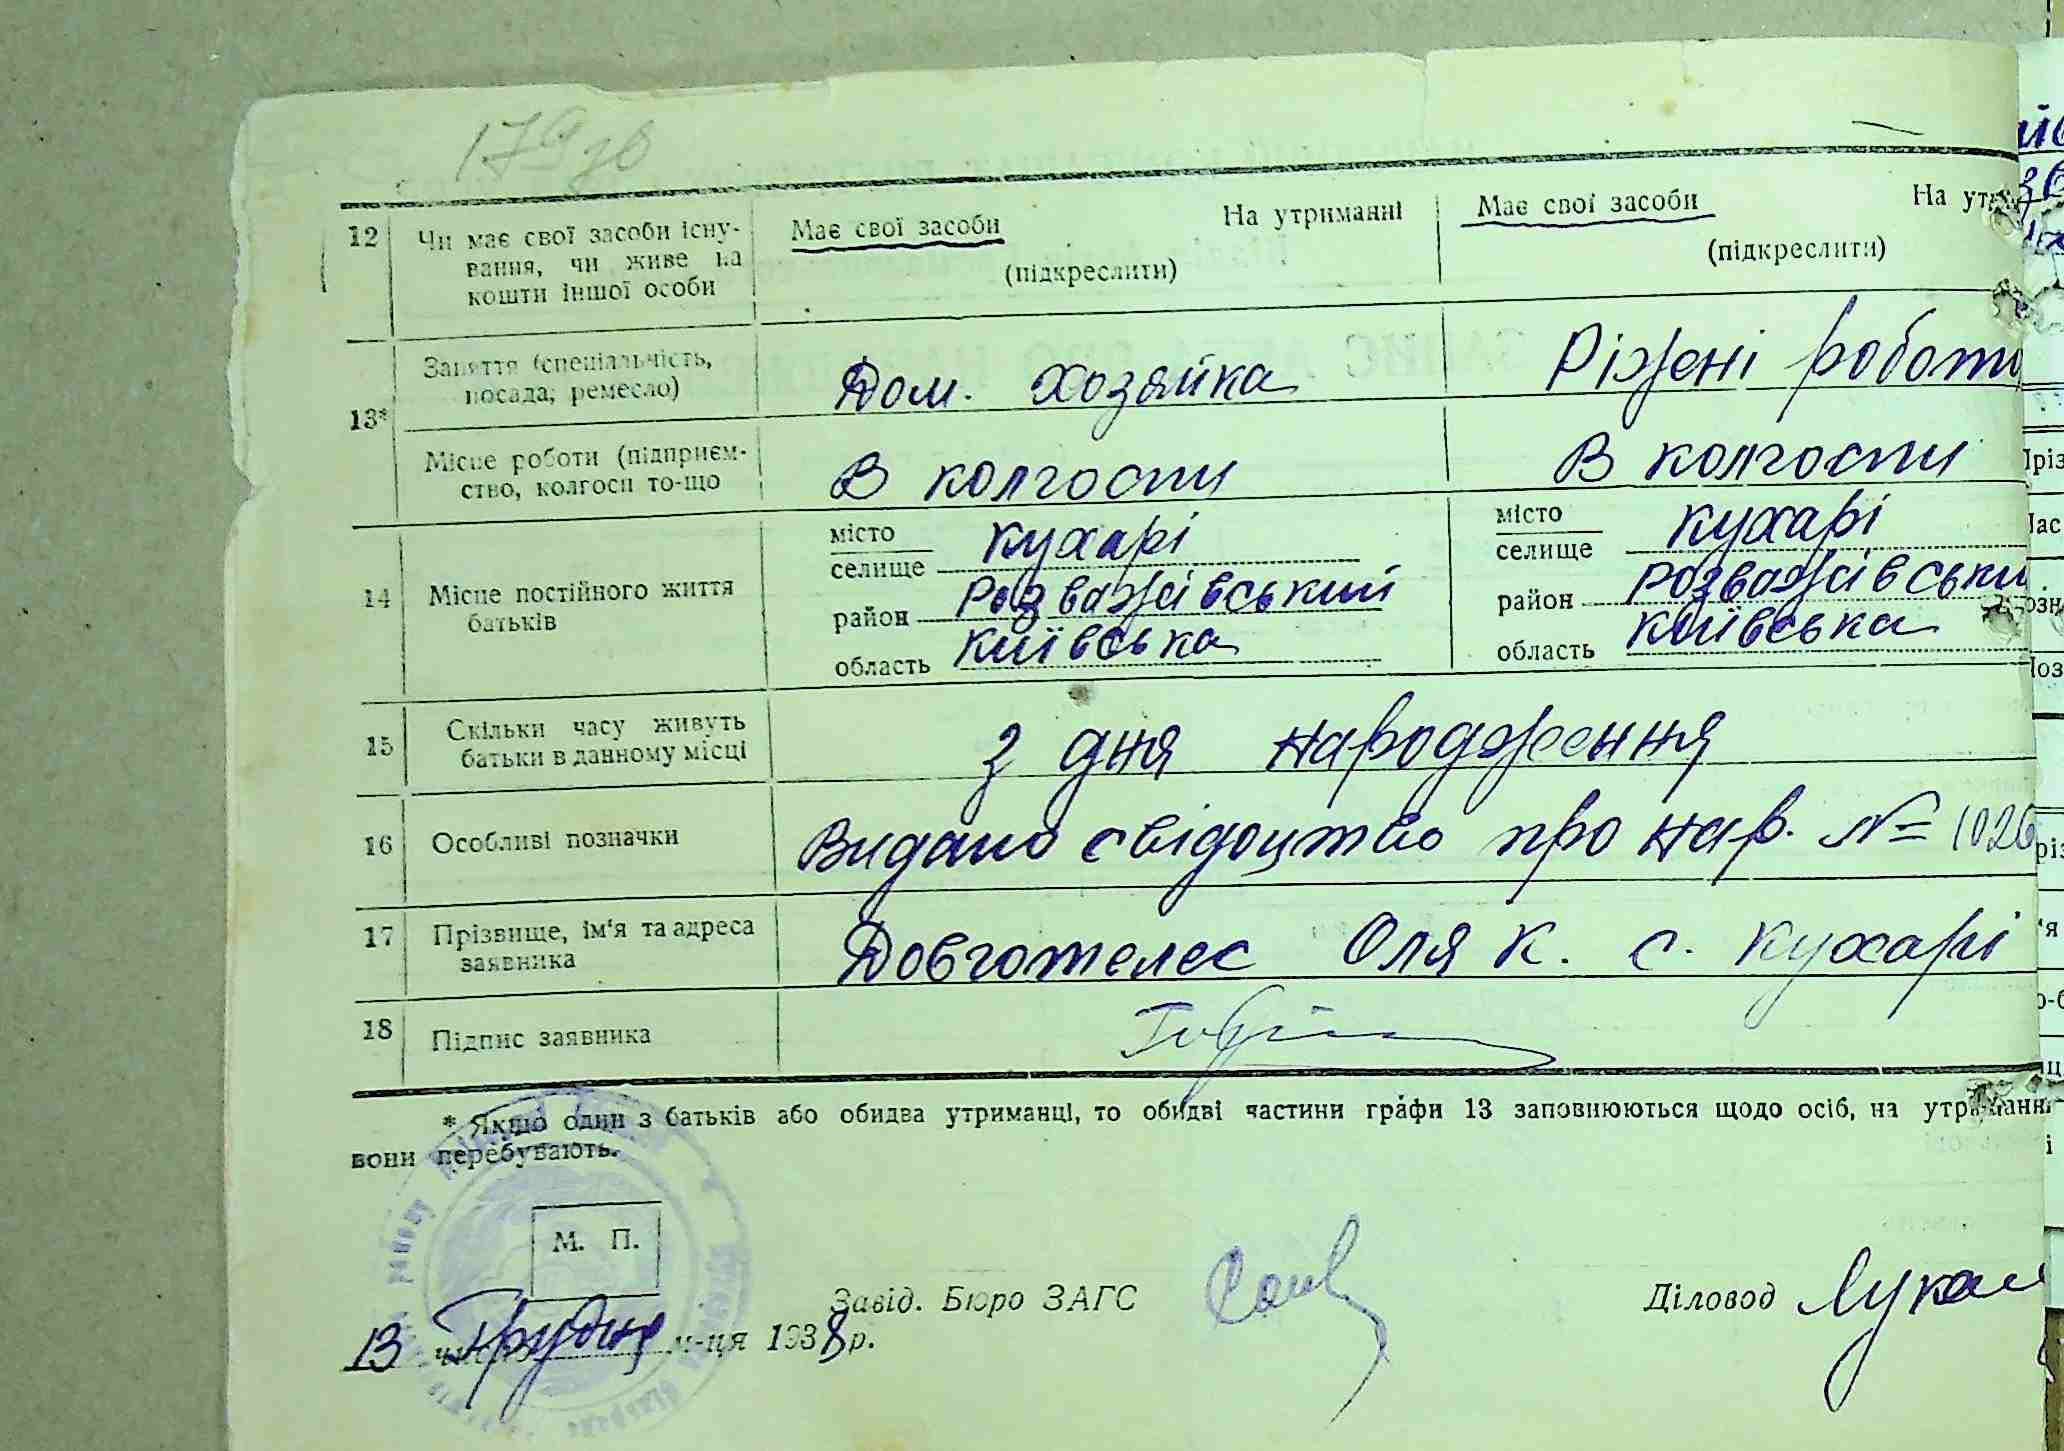 179 зв
12 Чи має свої засоби існу-
вання, чи живе на
кошти іншої особи
Має свої засоби На утриманні
(підкреслити)
Має свої засоби На утри
(підкреслити)
13*
Заняття (спеціальність,
посада, ремесло)
Дом. хозяйка
Ріжені роботи
Місце роботи (підприєм-
ство, колгосп то-що
В колгоспи
В колгоспи
14 Місце постійного життя
батьків
місто
селище Кухарі
район Розважівський
область Київська
місто
селище Кухарі
район Розважівськи
область Київська
15 Скільки часу живуть
батьки в данному місці
З дня народження
16 Особливі позначки
Видано свідоцтво про нар. № 1026
17 Прізвище, ім'я та адреса
заявника
Довготелес Оля К. с. Кухарі
18 Підпис заявника
* Якщо один з батьків або обидва утриманці, то обидві частини графи 13 заповнюються щодо осіб, на утриманні
вони перебувають.
М. П.
Завід. Бюро ЗАГС
Діловод
13 числа Грудня м-ця 1938 р.